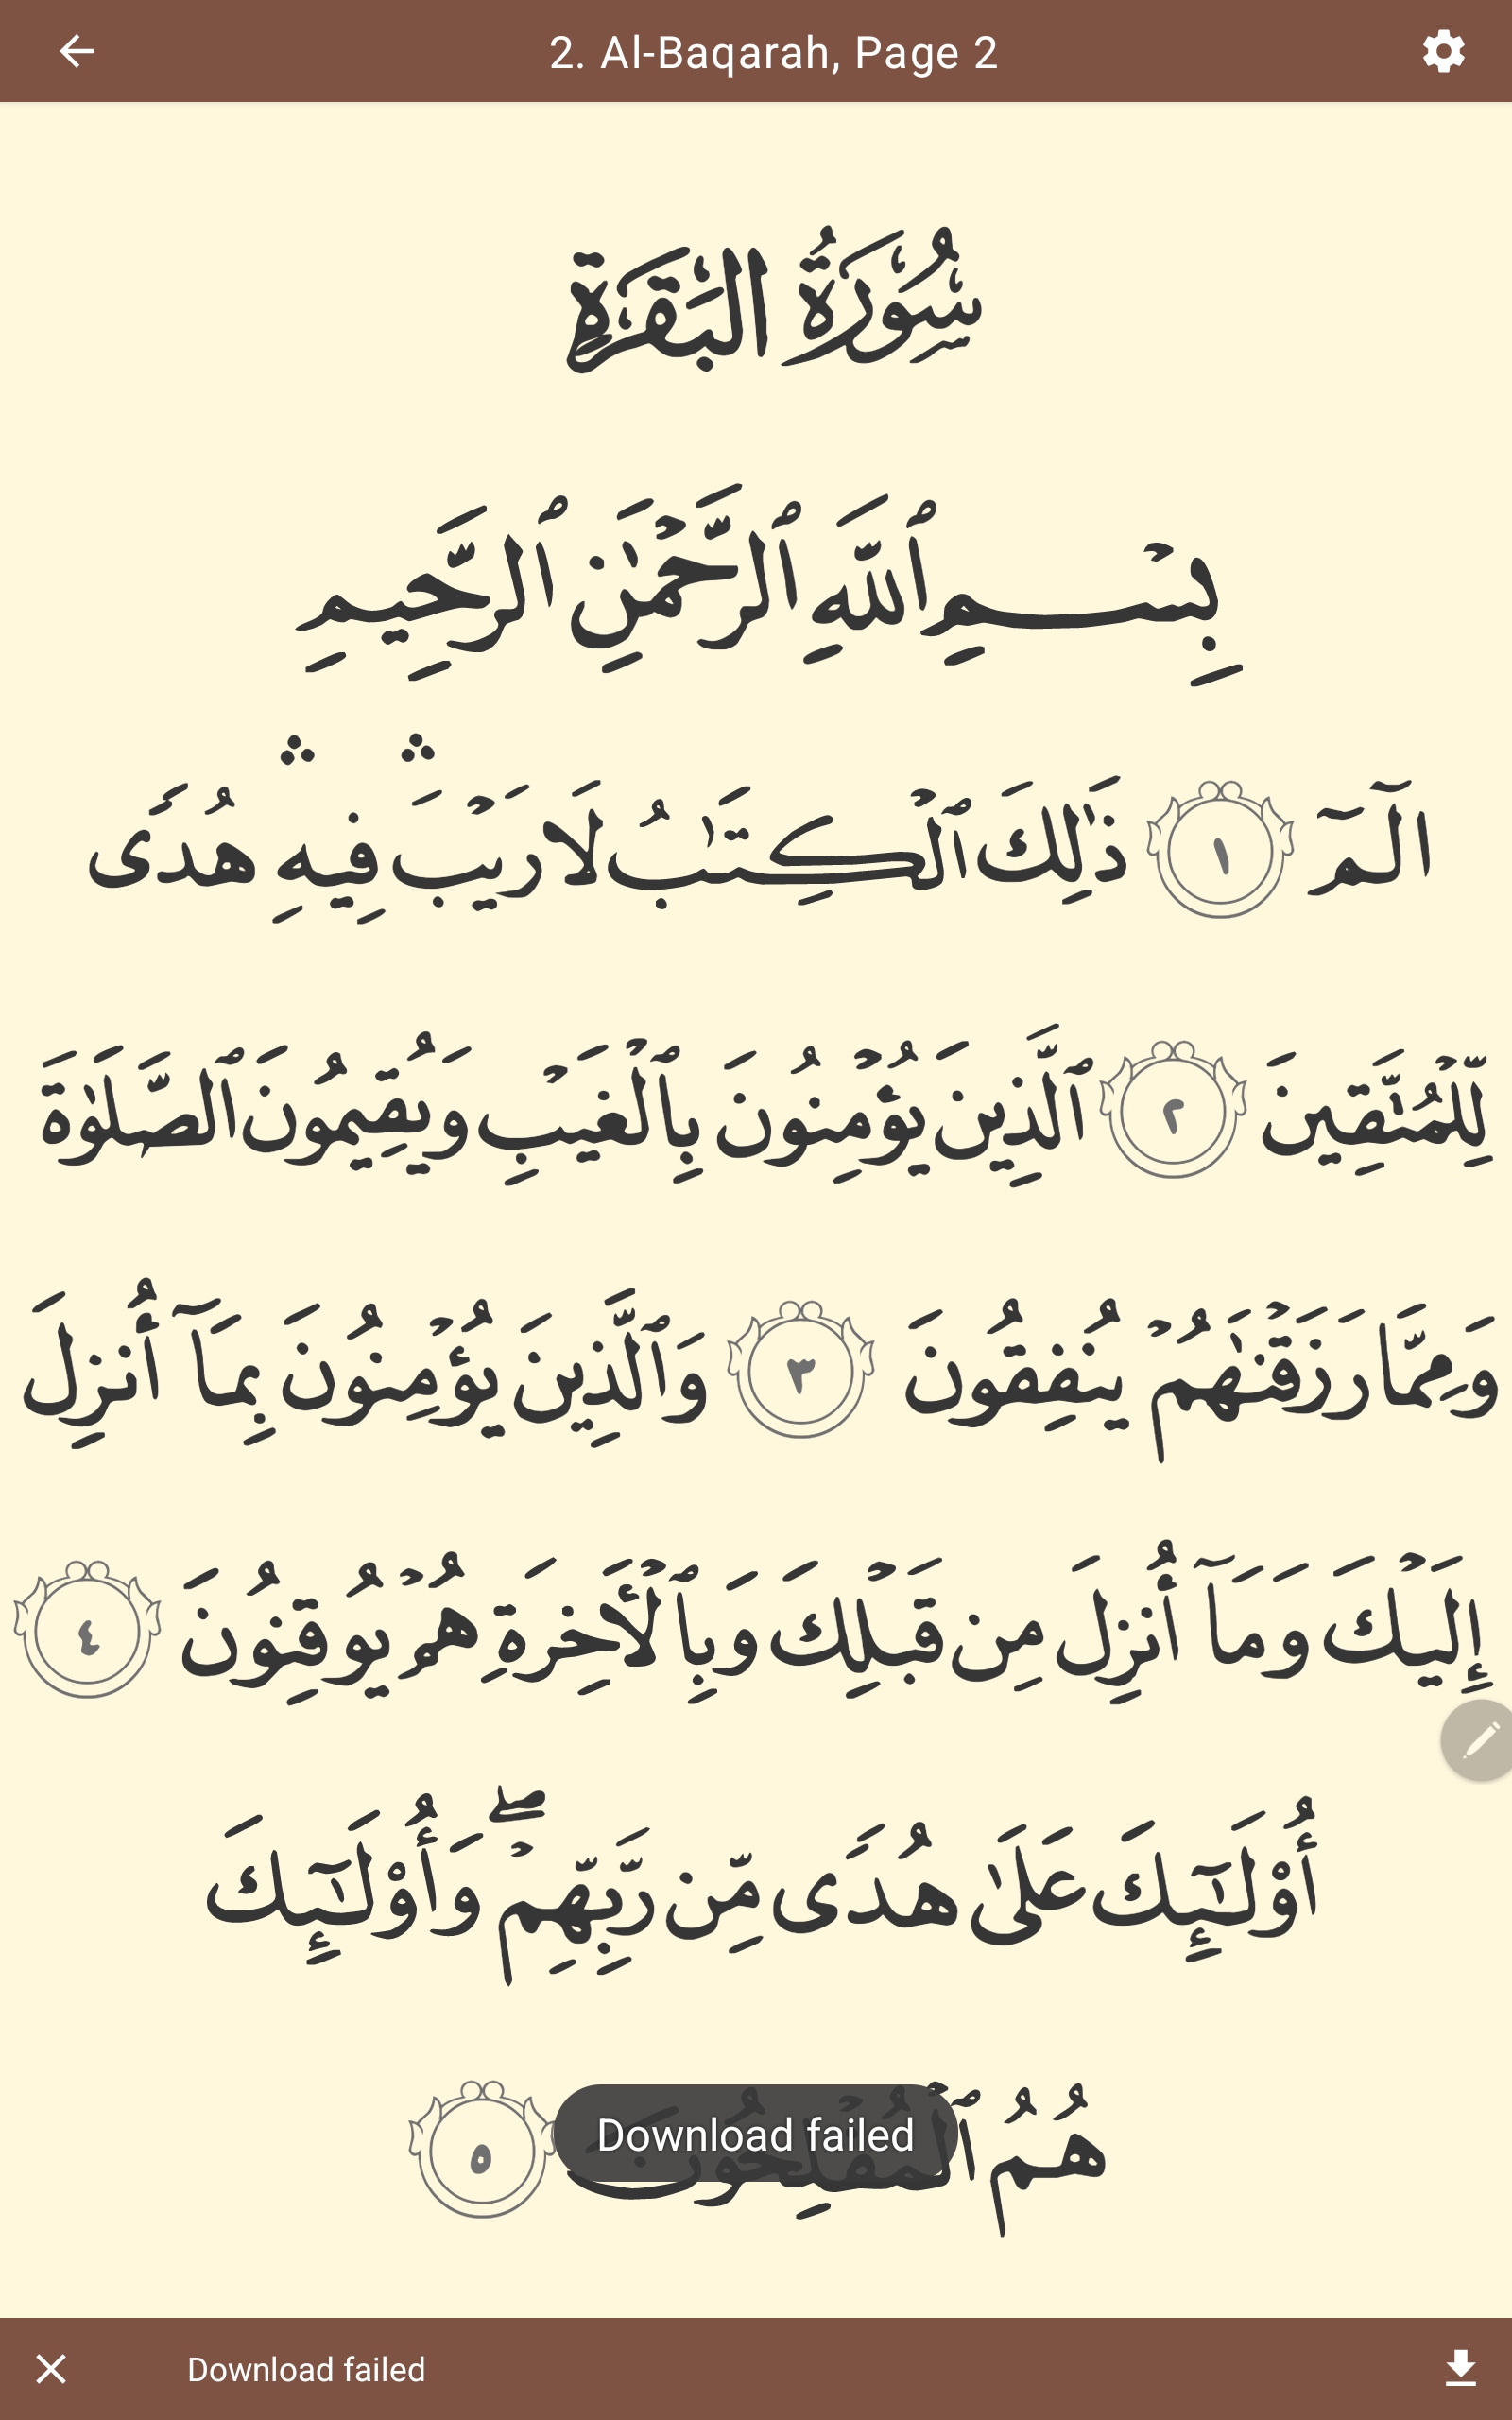 2. Al-Baqarah, Page 2
سُورَةُ البَقَرَةِ
بِسۡمِ ٱللَّهِ ٱلرَّحۡمَٰنِ ٱلرَّحِيمِ
الٓمٓ ١ ذَٰلِكَ ٱلۡكِتَٰبُ لَا رَيۡبَۛ فِيهِۛ هُدٗى
لِّلۡمُتَّقِينَ ٢ ٱلَّذِينَ يُؤۡمِنُونَ بِٱلۡغَيۡبِ وَيُقِيمُونَ ٱلصَّلَوٰةَ
وَمِمَّا رَزَقۡنَٰهُمۡ يُنفِقُونَ ٣ وَٱلَّذِينَ يُؤۡمِنُونَ بِمَآ أُنزِلَ
إِلَيۡكَ وَمَآ أُنزِلَ مِن قَبۡلِكَ وَبِٱلۡأٓخِرَةِ هُمۡ يُوقِنُونَ ٤
أُوْلَٰٓئِكَ عَلَىٰ هُدٗى مِّن رَّبِّهِمۡۖ وَأُوْلَٰٓئِكَ
هُمُ ٱلۡمُفۡلِحُونَ ٥
Download failed
Download failed